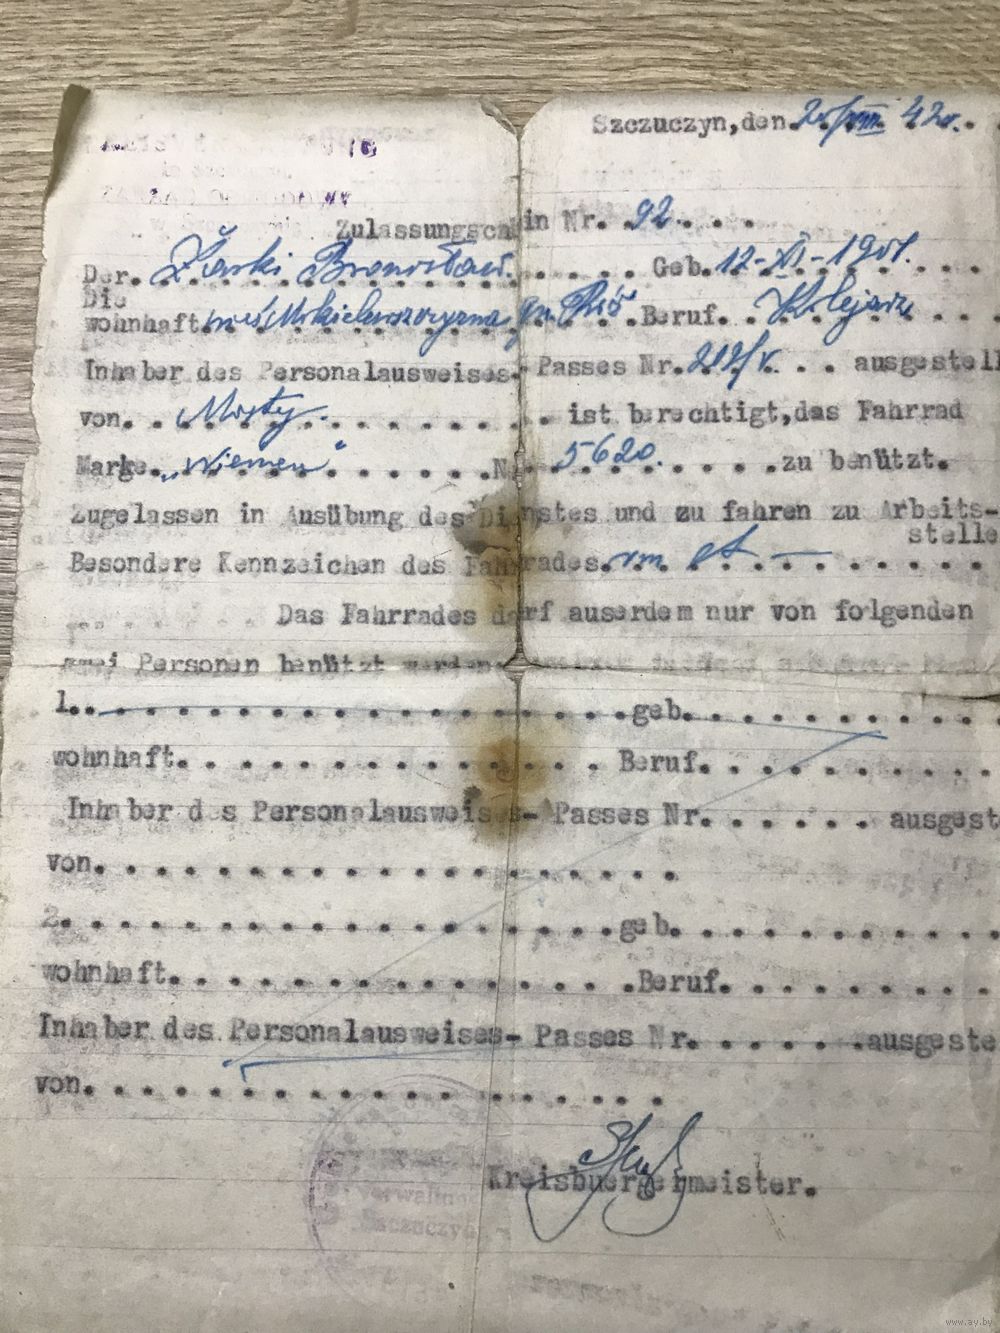 Szczuczyn,den. 42r.
Zulassungsch in Nr. 92
Der. Żarski Bronisław. Geb. 12-XI-1901.
Die
wohnhaft Beruf. Kolejarz
Inhaber des Personalausweises- Passes Nr. ausgestell
von. Mosty. ist berechtigt,das Fahrrad
Marke. „Niemen” N 5620. zu benützt.
Zugelassen in Ausübung des Dienstes und zu fahren zu Arbeits-
stelle
Besondere Kennzeichen des Fahrrades.
Das Fahrrades darf auserdem nur von folgenden
zwei Personen benützt werden
1. geb.
wohnhaft. Beruf.
Inhaber d s Personalausweises- Passes Nr. ausgest
von.
2. geb.
wohnhaft. Beruf.
Inhaber des Personalausweises- Passes Nr. ausgeste
von.
Kreisbuergermeister.
verwaltun
Szczuczyn
www.ay.by